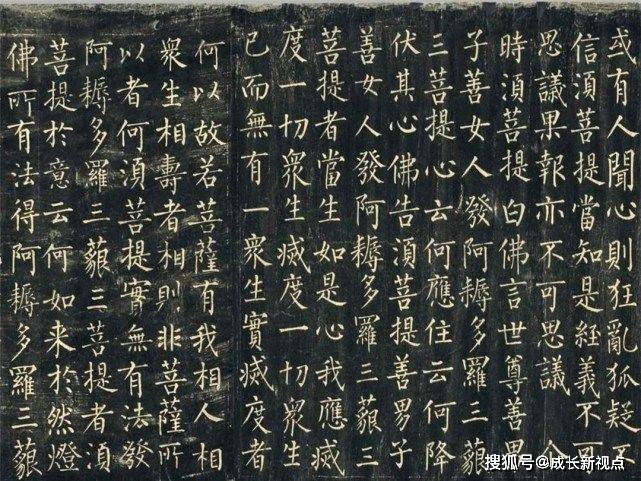 或有人聞心則狂亂狐疑不
信須菩提當知是経義不可
思議果報亦不可思議
時須菩提白佛言世尊善男
子善女人發阿耨多羅三藐
三菩提心云何應住云何降
伏其心佛告須菩提善男子
善女人發阿耨多羅三藐三
菩提者當生如是心我應滅
度一切衆生滅度一切衆生
已而無有一衆生實滅度者
何以故若菩薩有我相人相
衆生相壽者相則非菩薩所
以者何須菩提實無有法發
阿耨多羅三藐三菩提者須
菩提於意云何如来於然燈
佛所有法得阿耨多羅三藐
搜狐号@成长新视点